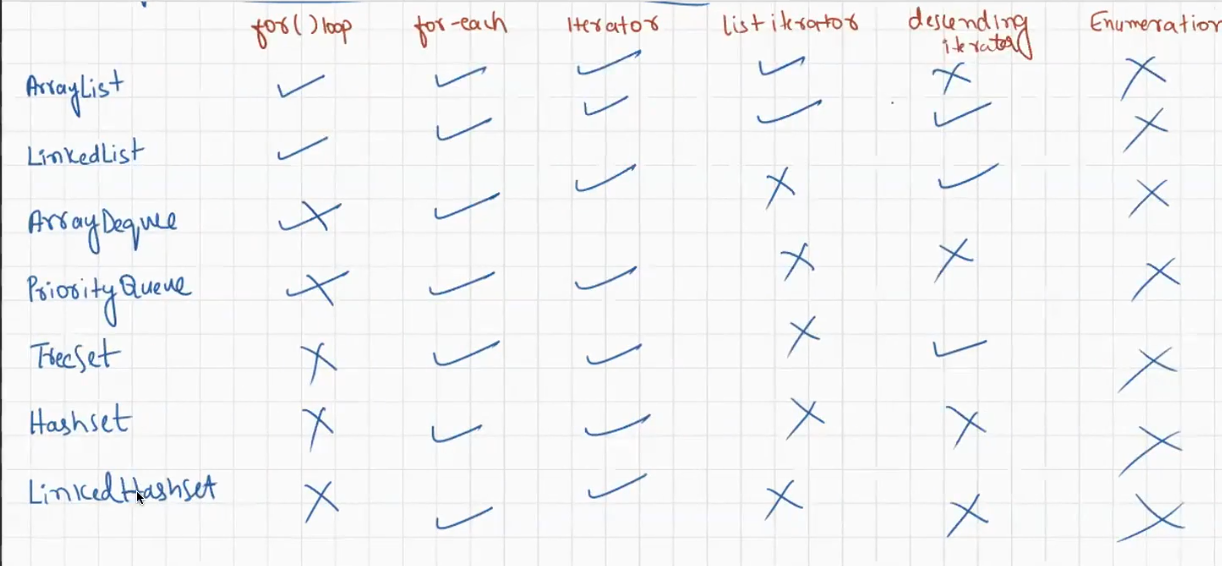 for() loop for-each Iterator list iterator descending iterator Enumeration
ArrayList ✓ ✓ ✓ ✓ ✗ ✗
LinkedList ✓ ✓ ✓ ✓ ✓ ✗
ArrayDeque ✗ ✓ ✓ ✗ ✓ ✗
PriorityQueue ✗ ✓ ✓ ✗ ✗ ✗
TreeSet ✗ ✓ ✓ ✗ ✓ ✗
Hashset ✗ ✓ ✓ ✗ ✗ ✗
LinkedHashset ✗ ✓ ✓ ✗ ✗ ✗